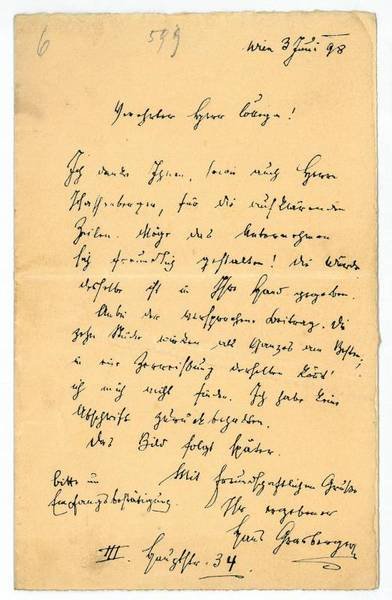 6
599
Wien 3 Juni 98
Verehrter Herr College!
Ich danke Ihnen, sowie auch Herrn
Schaffenberger, für die aufklärenden
Zeilen. Möge das Unternehmen
sich freundlich gestalten! die Würde
desselben ist in Ihre Hand gegeben.
Anbei der versprochene Beitrag. Die
zehn Stücke würden als Ganzes am Besten
in eine Zerreißung derselben
ich mich nicht finden. Ich habe keine
Abschrift zurückbehalten.
Das Bild folgt später.
Mit freundschaftlichem Gruße
bitte um
Empfangsbestätigung.
Ihr ergebener
Hans Grasberger
III. Hauptstr. 34